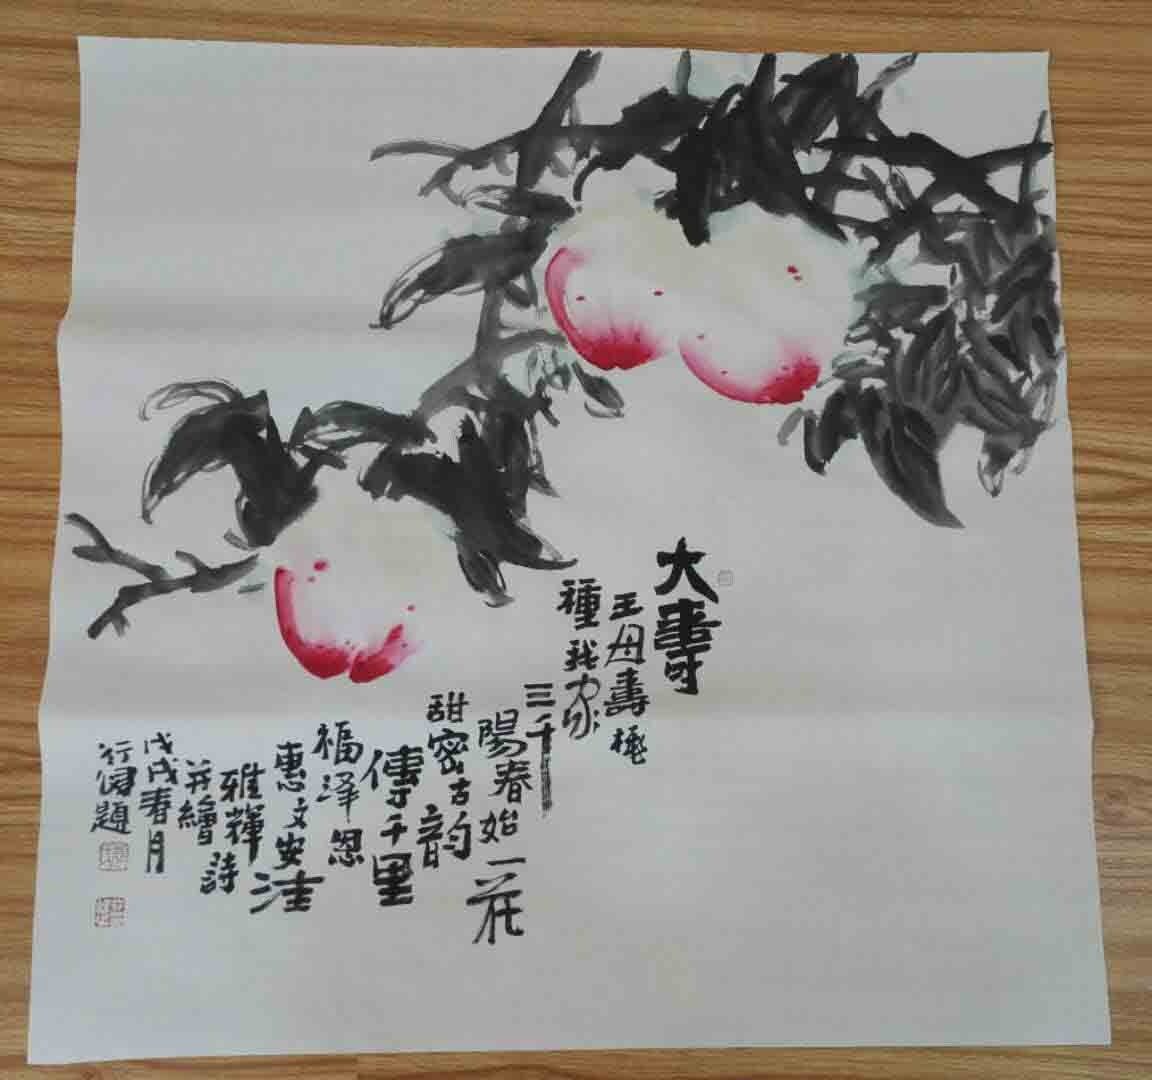 大壽
王母壽桃
種我家
三千
陽春始一花
甜密古韵
傳千里
福澤恩
惠文安洼
雅輝詩
并繪
戊戌春月
行健題